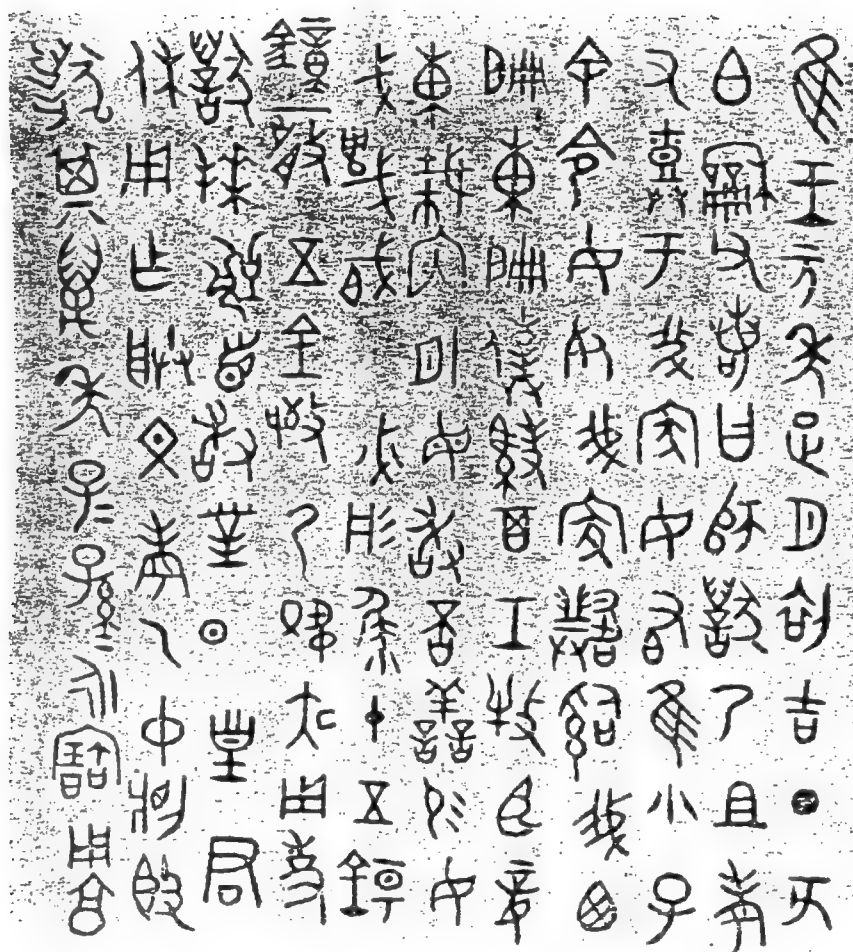 隹王元年正月初吉丁亥
白龢父若曰師毀乃且考
又于我家女右隹小子
余令女死我家𤔲我西
扁東扁僕馭百工牧臣妾
東裁內外毋敢否善易女
戈胾必彤十五錞
鐘一磬五金敬乃夙夜用事
毀拜𩒨首敢對揚皇君
休用乍朕文考乙中將𣪘
毀其萬年子子孫孫永寶用享